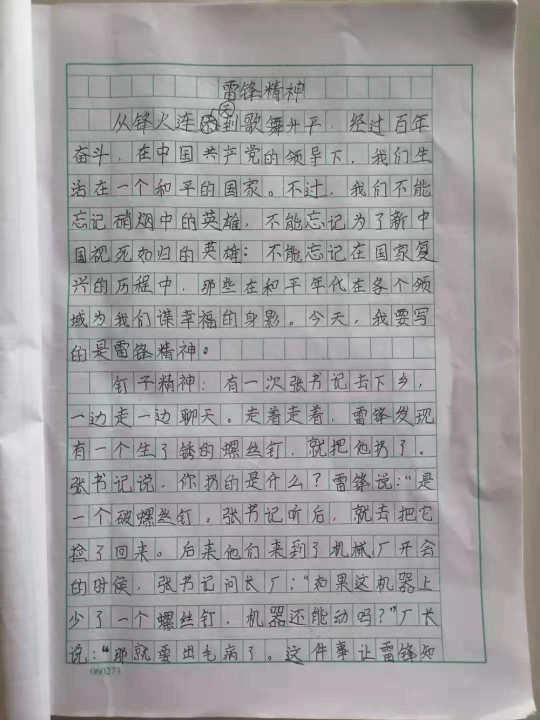 雷锋精神
从锋火连天到歌舞升平，经过百年
奋斗，在中国共产党的领导下，我们生
活在一个和平的国家。不过，我们不能
忘记硝烟中的英雄，不能忘记为了新中
国视死如归的英雄；不能忘记在国家复
兴的历程中，那些在和平年代在各个领
域为我们谋幸福的身影。今天，我要写
的是雷锋精神。
钉子精神：有一次张书记去下乡，
一边走一边聊天。走着走着，雷锋发现
有一个生了锈的螺丝钉，就把他扔了。
张书记说，你扔的是什么？雷锋说：“是
一个破螺丝钉。张书记听后，就去把它
捡了回来。后来他们来到了机械厂开会
的时候，张书记问长厂：“如果这机器上
少了一个螺丝钉，机器还能动吗？”厂长
说：“那就要出毛病了。这件事让雷锋知
060273